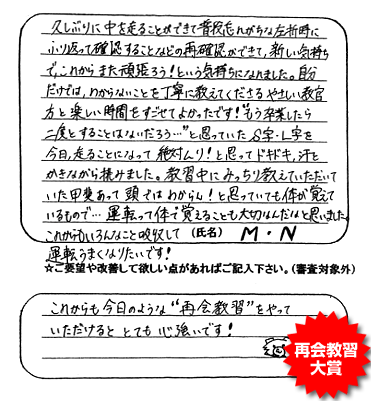 久しぶりに中を走ることができて普段忘れがちな左折時に
ふり返って確認することなどの再確認ができて、新しい気持ち
で、これからまた頑張ろう!という気持ちになれました。自分
だけでは、わからないことを丁寧に教えてくださるやさしい教官
方と楽しい時間をすごせてよかったです!“もう卒業したら
二度とすることはないだろう…”と思っていたS字・L字を
今日、走ることになって絶対ムリ!と思ってドキドキ、汗を
かきながら挑みました。教習中にみっちり教えていただいて
いた甲斐あって頭ではわからん!と思っていても体が覚えて
いるもので…運転って体で覚えることも大切なんだなと思いました。
これからもいろんなこと吸収して (氏名) M・N
運転うまくなりたいです!
☆ご要望や改善して欲しい点があればご記入下さい。(審査対象外)
これからも今日のような“再会教習”をやって
いただけると とても心強いです!
再会教習
大賞